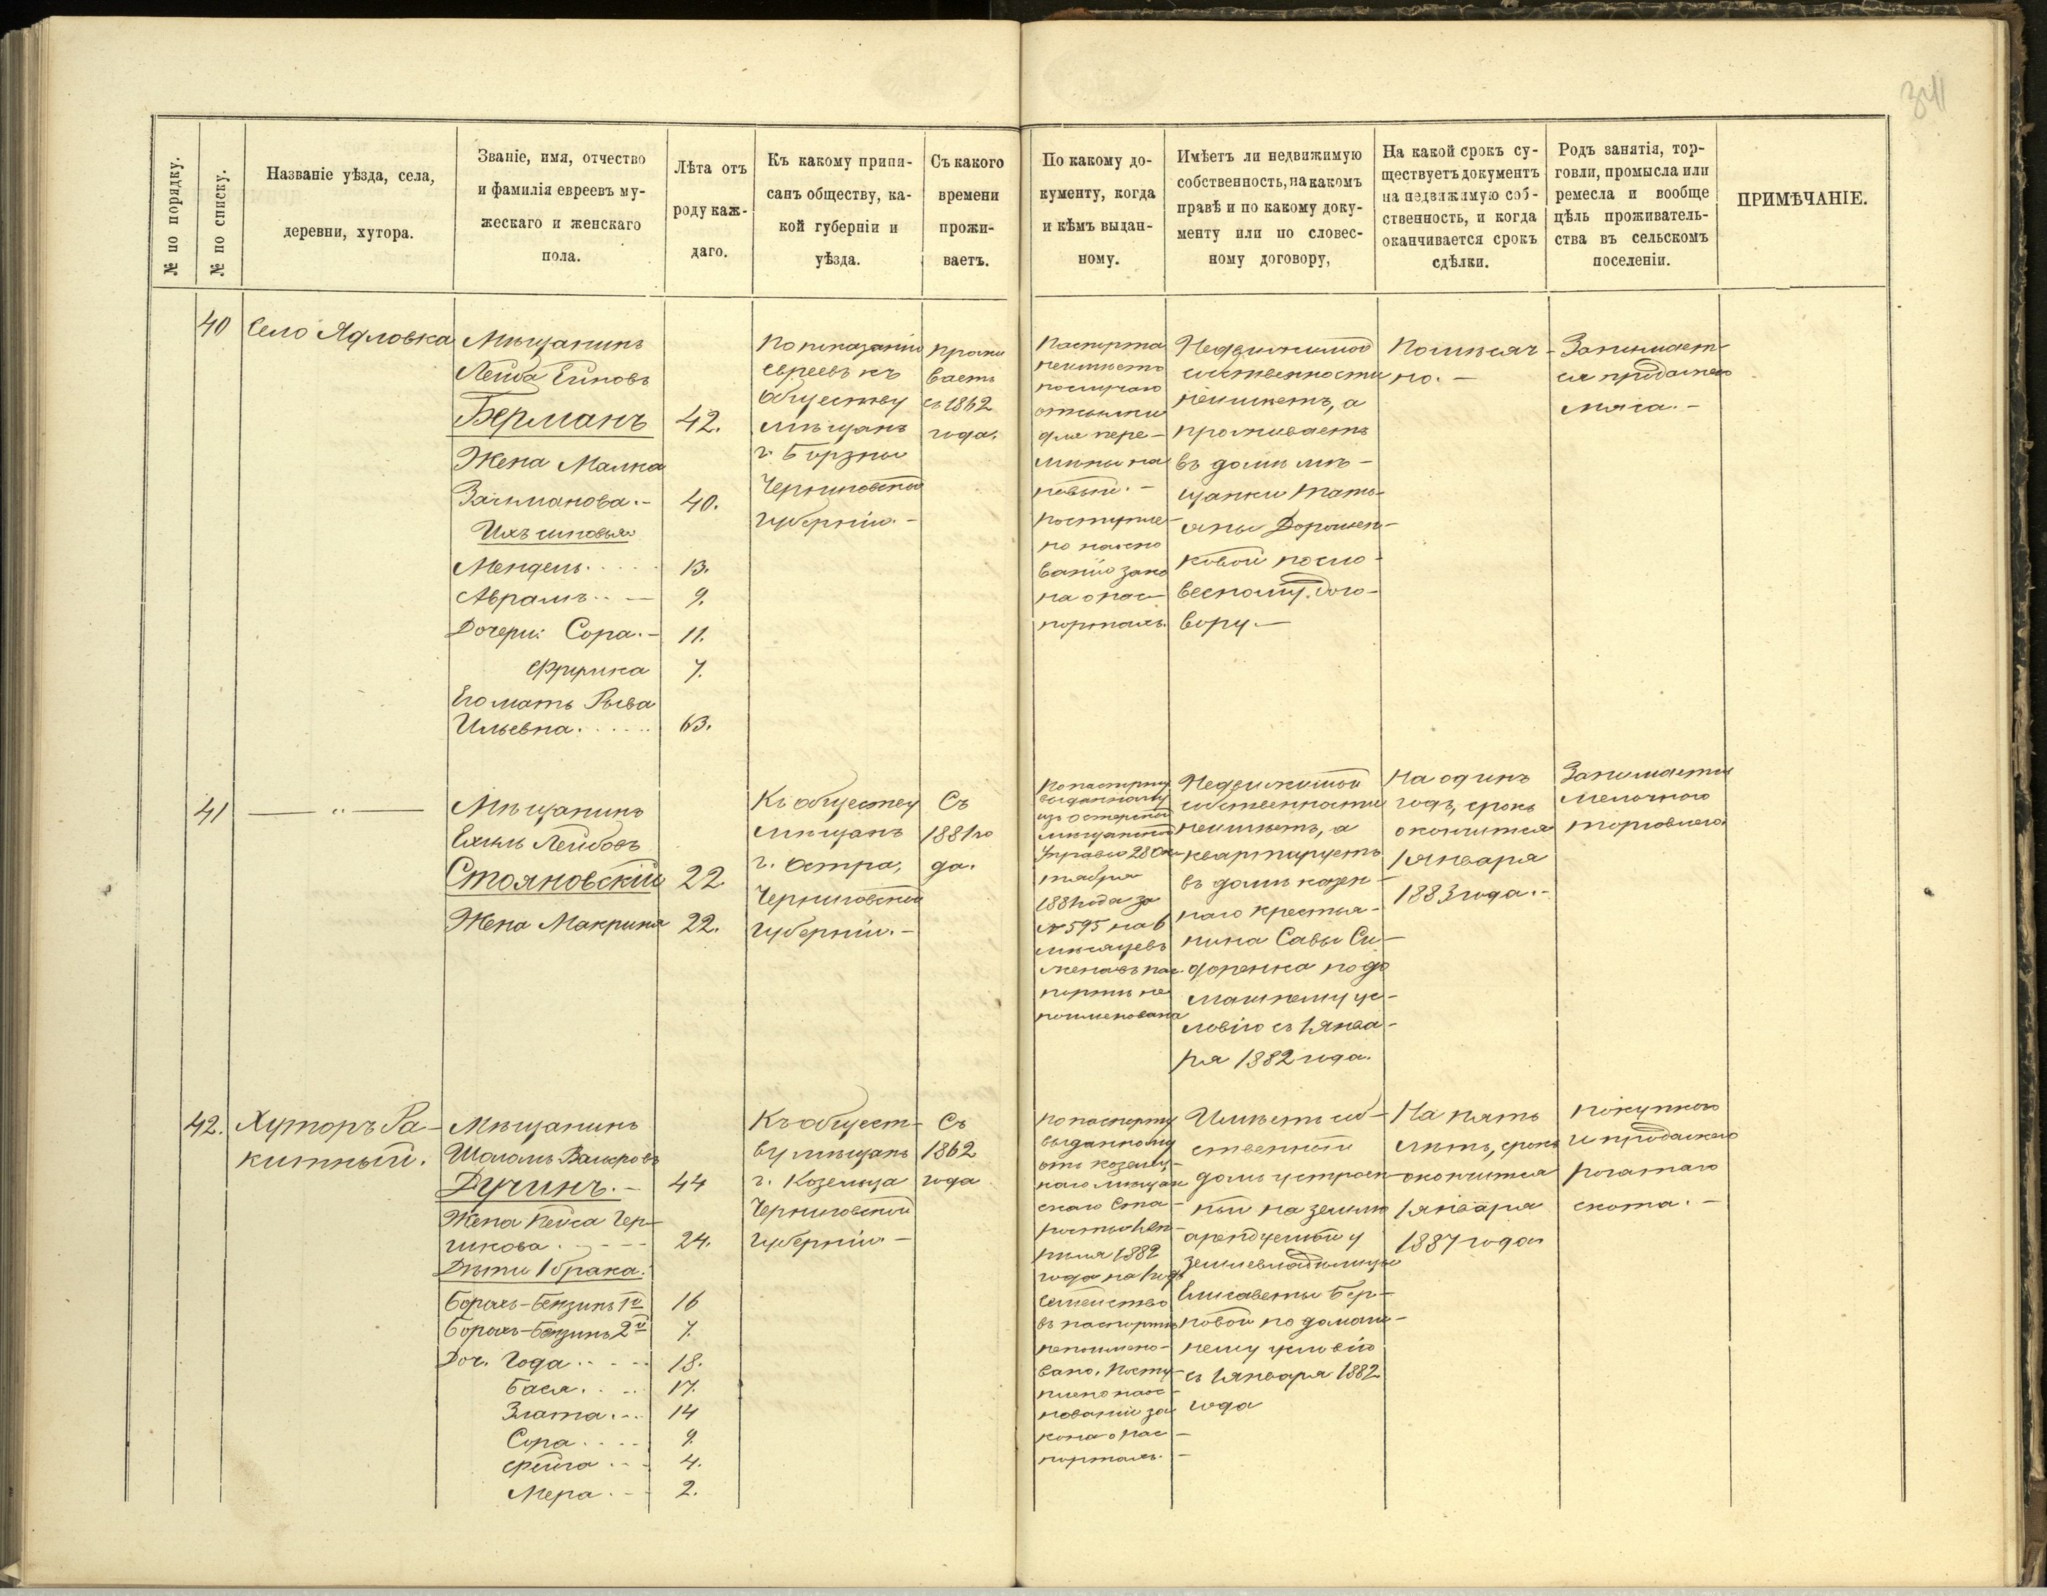 341
№ по порядку.
№ по списку.
Названіе уѣзда, села,
деревни, хутора.
Званіе, имя, отчество
и фамилія евреевъ му-
жескаго и женскаго
пола.
Лѣта отъ
роду каж-
даго.
Къ какому припи-
санъ обществу, ка-
кой губерніи и
уѣзда.
Съ какого
времени
прожи-
ваетъ.
По какому до-
кументу, когда
и кѣмъ выдан-
ному.
Имѣетъ ли недвижимую
собственность, на какомъ
правѣ и по какому доку-
менту или по словес-
ному договору,
На какой срокъ су-
ществуетъ документъ
на недвижимую соб-
ственность, и когда
оканчивается срокъ
сдѣлки.
Родъ занятія, тор-
говли, промысла или
ремесла и вообще
цѣль проживатель-
ства въ сельскомъ
поселеніи.
ПРИМѢЧАНІЕ.
40
Село Ядловка
Мѣщанинъ
Лейба
Берманъ 42.
Жена Малка
Залмановa.- 40.
Ихъ сыновья
Мендель..... 13.
Аврамъ..— 9.
Дочери: Сора.- 11.
Фрумка 7.
Его мать Рыва
Ильевна...... 63.
По показанію
евреевъ къ
обществу
мѣщанъ
г. Борзны
Черниговской
губерніи.-
Прожи
ваетъ
съ 1862
года.
Паспорта
неимѣетъ
послучаю
отсылки
для пере-
мѣны на
новый.-
Поступле-
но на осно
ваніи зако
на о пас-
портахъ.
Недвижимой
собственности
неимѣетъ, а
проживаетъ
въ домѣ мѣ-
щанки Тать-
яны Дорошен-
ковой посло-
весному дого-
вору.—
Помѣсяч-
но.—
Занимает-
ся продажею
мяса.-
41
— " —
Мѣщанинъ
Ехиль Лейбовъ
Стояновскій 22.
Жена Макрина 22.
Къ обществу
мѣщанъ
г. Остра,
Черниговской
губерніи.-
Съ
1881 го
да.
По паспорту
выданному
изъ Остерской
мѣщанской
Управы 28 Ок
тября
1881 года за
№ 595 на 6
мѣсяцевъ
жена въ пас-
портѣ не
поименована
Недвижимой
собственности
неимѣетъ, а
квартируетъ
въ домѣ казен-
наго крестья-
нина Савы Си-
доренка по до
машнему ус-
ловію съ 1 янва-
ря 1882 года.
На одинъ
годъ, срокъ
окончится
1 января
1883 года.-
Занимается
мелочною
торговлею.
42.
Хуторъ Ра-
китный.
Мѣщанинъ
Шоломъ
Дучинъ.- 44
Жена Пейса Гер-
шкова.---- 24.
Дѣти 1 брака.
Борохъ-Бензинъ 1й 16
Борохъ-Бензинъ 2й 7.
Доч. Года..... 18.
Бася..... 17.
Злата.-- 14
Сора.... 9.
Фейга.-- 4.
Мера.-- 2.
Къ общест-
ву мѣщанъ
г. Козельца
Черниговской
губерніи—
Съ
1862
года
По паспорту
выданному
отъ Козелец-
каго мѣщан
скаго Ста-
росты
1882
года на 1 годъ
семейство
въ паспортѣ
непоимено-
вано. Посту-
плено на ос-
нованіи за-
кона о пас-
портахъ.-
Имѣетъ соб-
ственный
домъ устроен-
ный на землѣ
арендуемой у
землевладѣлицы
Елисаветы Бер-
новой по домаш-
нему условію
съ 1 января 1882
года
На пять
лѣтъ, срокъ
окончится
1 января
1887 года
Покупкою
и продажею
рогатаго
скота.-